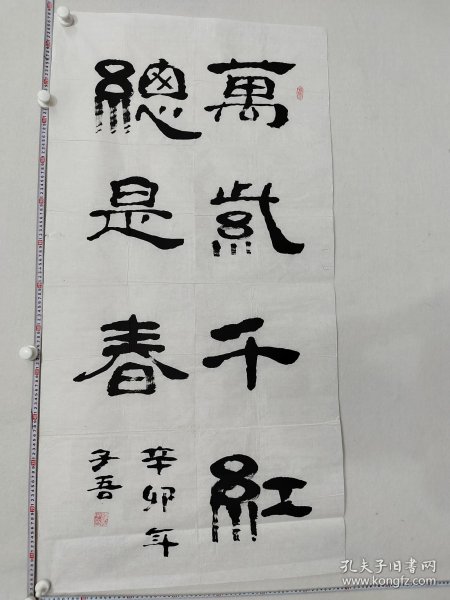 萬紫千紅
總是春
辛卯年
子吾
孔夫子旧书网
www.kongfz.com